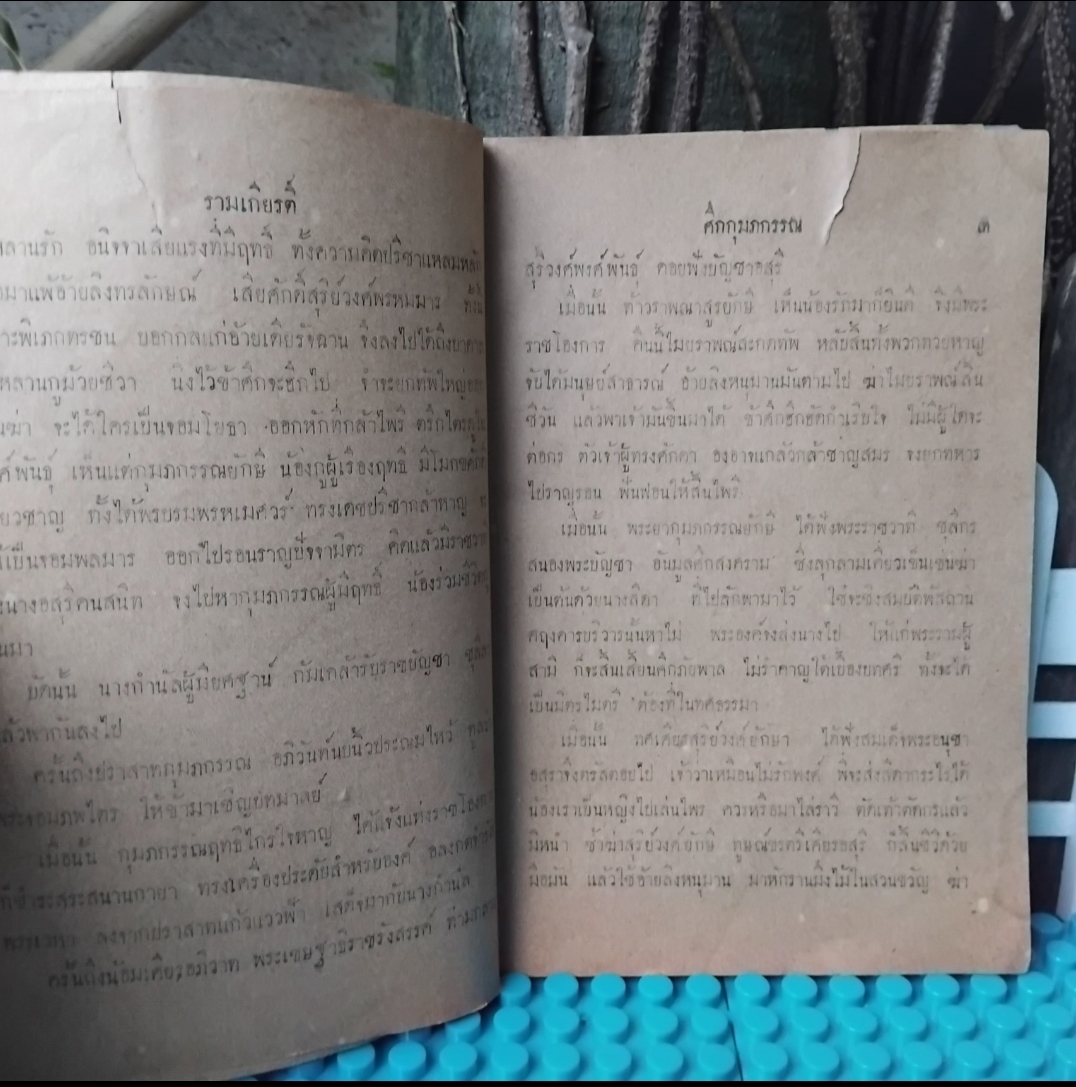 รามเกียรติ์
หลานรัก อนิจจาเสียแรงที่มีฤทธิ์ ทั้งความคิดปรีชาแหลมหลัก
มาแพ้อ้ายลิงทรลักษณ์ เสียศักดิ์สุริย์วงศ์พรหมมาร
พิเภกทรชน บอกกลแก่อ้ายเดียรัจฉาน จึงลงไปได้ถึงบาดาล
หลานกูม้วยชีวา นิ่งไว้ช้าศึกจะฮึกไป จำจะยกทัพใหญ่
จะได้ใครเป็นจอมโยธา ออกหักที่กล้าไพรี ตรึกไตร
พันธุ์ เห็นแต่กุมภกรรณยักษี น้องกูผู้เรืองฤทธี มีโมกขศักดิ์
เชี่ยวชาญ ทั้งได้พรบรมพรหเมศวร์ ทรงเดชปรีชากล้าหาญ
เป็นจอมพลมาร ออกไปรอนราญปัจจามิตร คิดแล้วมีราชวาที
นางอสุรีคนสนิท จงไปหากุมภกรรณผู้มีฤทธิ์ น้องร่วมชีวิต
มา
บัดนั้น นางกำนัลผู้มียศฐาน์ ก้มเกล้ารับราชบัญชา
แล้วพากันลงไป
ครั้นถึงปราสาทกุมภกรรณ อภิวันท์นบนิ้วประณมไหว้ ทูล
พระจอมภพไตร ให้ข้ามาเชิญบทมาลย์
เมื่อนั้น กุมภกรรณฤทธิไกรใจหาญ ได้แจ้งแห่งราชโองการ
ชำระสระสนานกายา ทรงเครื่องประดับสำหรับองค์ อลงกต
ลงจากปราสาทแก้วแววฟ้า เสด็จมากับนางกำนัล
ครั้นถึงน้อมเศียรอภิวาท พระเชษฐาธิราชรังสรรค์
ศึกกุมภกรรณ ๓
สุริวงศ์พงศ์พันธุ์ คอยฟังบัญชาอสุรี
เมื่อนั้น ท้าวราพณาสูรยักษี เห็นน้องรักมาก็ยินดี จึงมีพระ
ราชโองการ คืนนี้ไมยราพณ์สะกดทัพ หลับสิ้นทั้งพวกทวยหาญ
จับได้มนุษย์สาธารณ์ อ้ายลิงหนุมานมันตามไป ฆ่าไมยราพณ์สิ้น
ชีวัน แล้วพาเจ้ามันขึ้นมาได้ ข้าศึกฮึกฮัดกำเริบใจ ไม่มีผู้ใดจะ
ต่อกร ตัวเจ้าผู้ทรงศักดา องอาจแกล้วกล้าชาญสมร จงยกทหาร
ไปราญรอน ฟันฟอนให้สิ้นไพรี
เมื่อนั้น พระยากุมภกรรณยักษี ได้ฟังพระราชวาที ชุลีกร
สนองพระบัญชา อันมูลศึกสงคราม ซึ่งลุกลามเคี่ยวเข็ญเข่นฆ่า
เป็นต้นด้วยนางสีดา ที่ไปลักพามาไว้ ใช่จะชิงสมบัติพัสถาน
ศฤงคารบริวารนั้นหาไม่ พระองค์จงส่งนางไป ให้แก่พระรามผู้
สามี ก็จะสิ้นเสี้ยนศึกภัยพาล ไม่รำคาญใต้เบื้องบทศรี ทั้งจะได้
เป็นมิตรไมตรี ต้องที่ในทศธรรมา
เมื่อนั้น ทศเศียรสุริย์วงศ์ยักษา ได้ฟังสมเด็จพระอนุชา
อสุราจึงตรัสตอบไป เจ้าว่าเหมือนไม่รักพงศ์ พี่จะส่งสีดากระไรได้
น้องเราเป็นหญิงไปเล่นไพร ควรหรือมาไล่ราวี ตัดเท้าตัดกรแล้ว
มิหนำ ซ้ำฆ่าสุริย์วงศ์ยักษี ทูษณ์ขรตรีเศียรอสุรี ก็สิ้นชีวีด้วย
มือมัน แล้วใช้อ้ายลิงหนุมาน มาหักรานมิ่งไม้ในสวนขวัญ ฆ่า